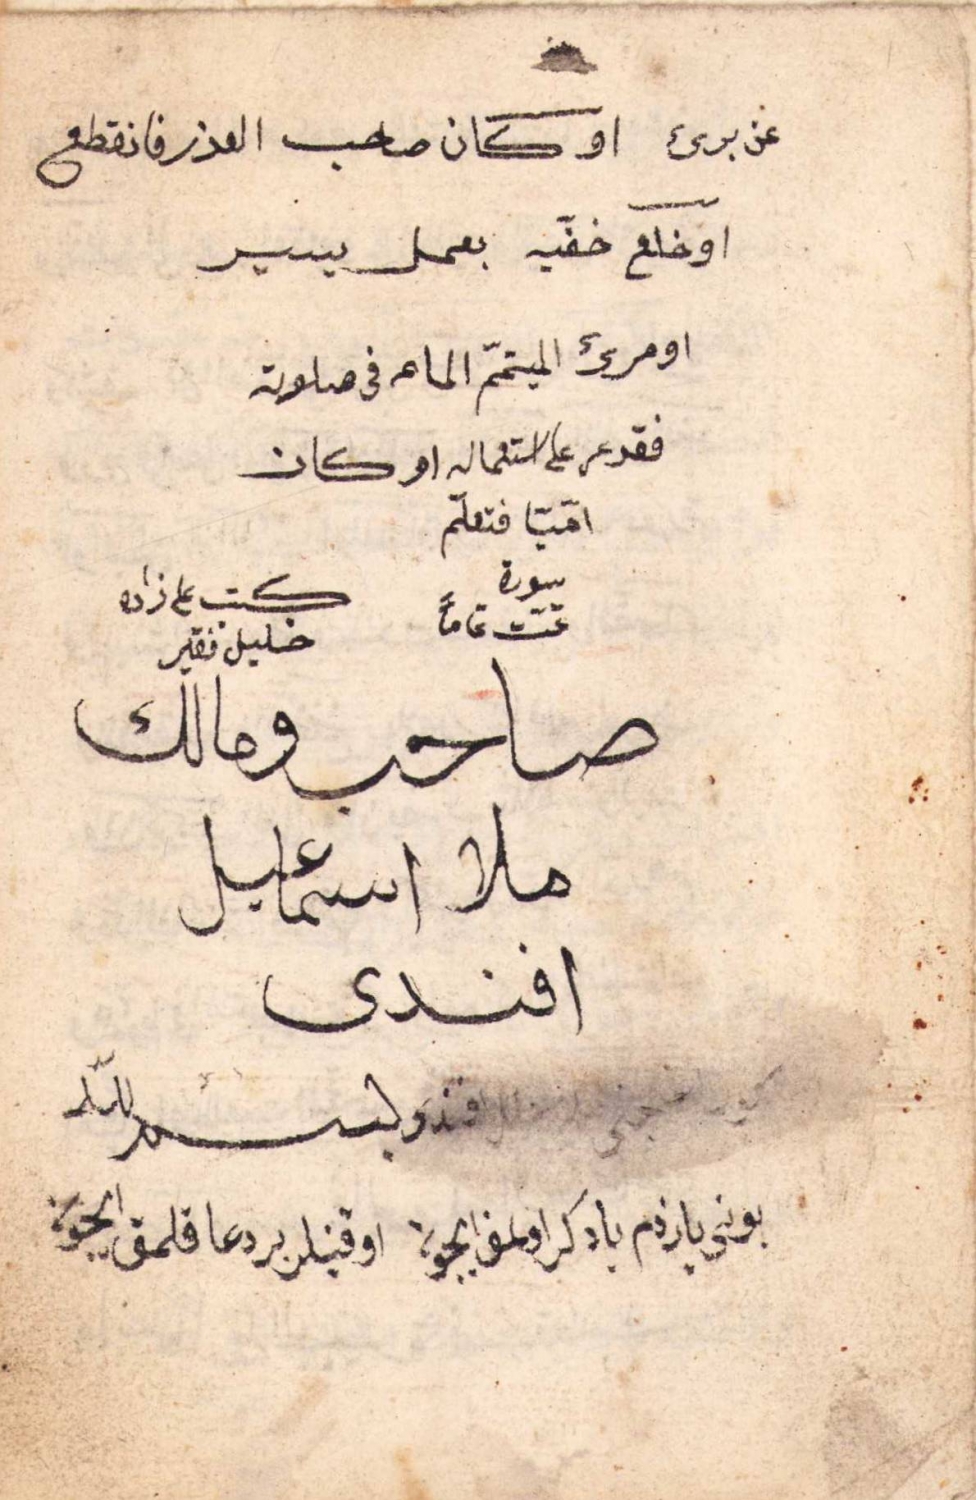 عن برئ او كان صاحب العذر فانقطع
او خلع خفّيه بعمل يسير
او مرئ المتيمّم الماء فى صلوته
فقد عر على استعماله او كان
امّيّا فتعلّم
سورة
تمّت تماماً
كتب على زاده
خليل فقير
صاحب ومالك
ملا اسماعيل
افندى
بسم الله
بونى يازدم يادكر اولمق ايچون اوقينلر بر دعا قلمق ايچون